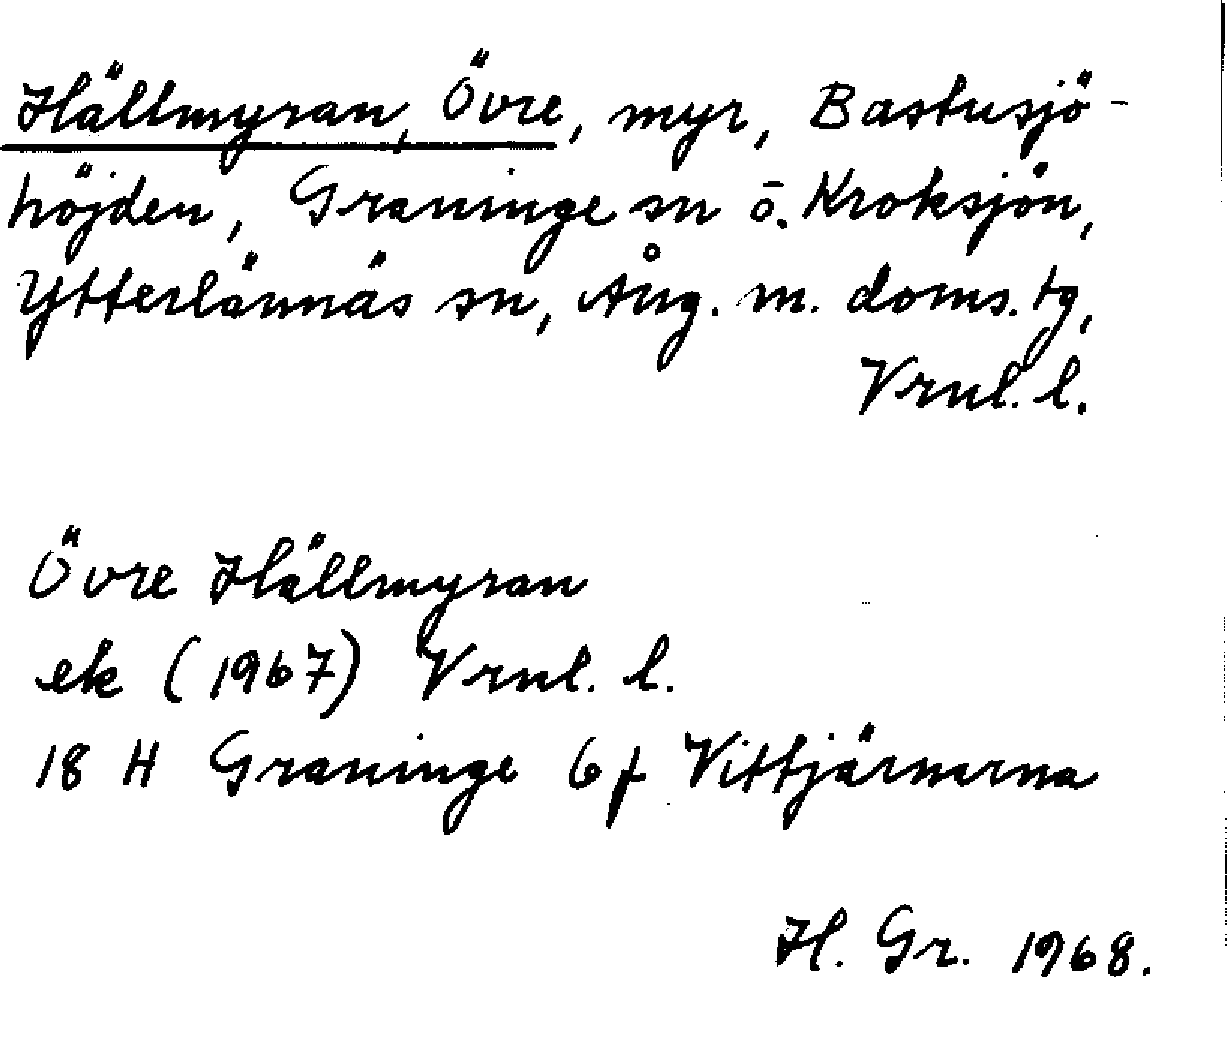 Hällmyran, Övre, myr, Bastusjö-
höjden, Graninge sn ö. Kroksjön,
Ytterlännäs sn, Ång. m. doms. tg,
Vrnl. l.
Övre Hällmyran
ek (1967) Vrnl. l.
18 H Graninge 6f Vittjärnarna
H. Gr. 1968.